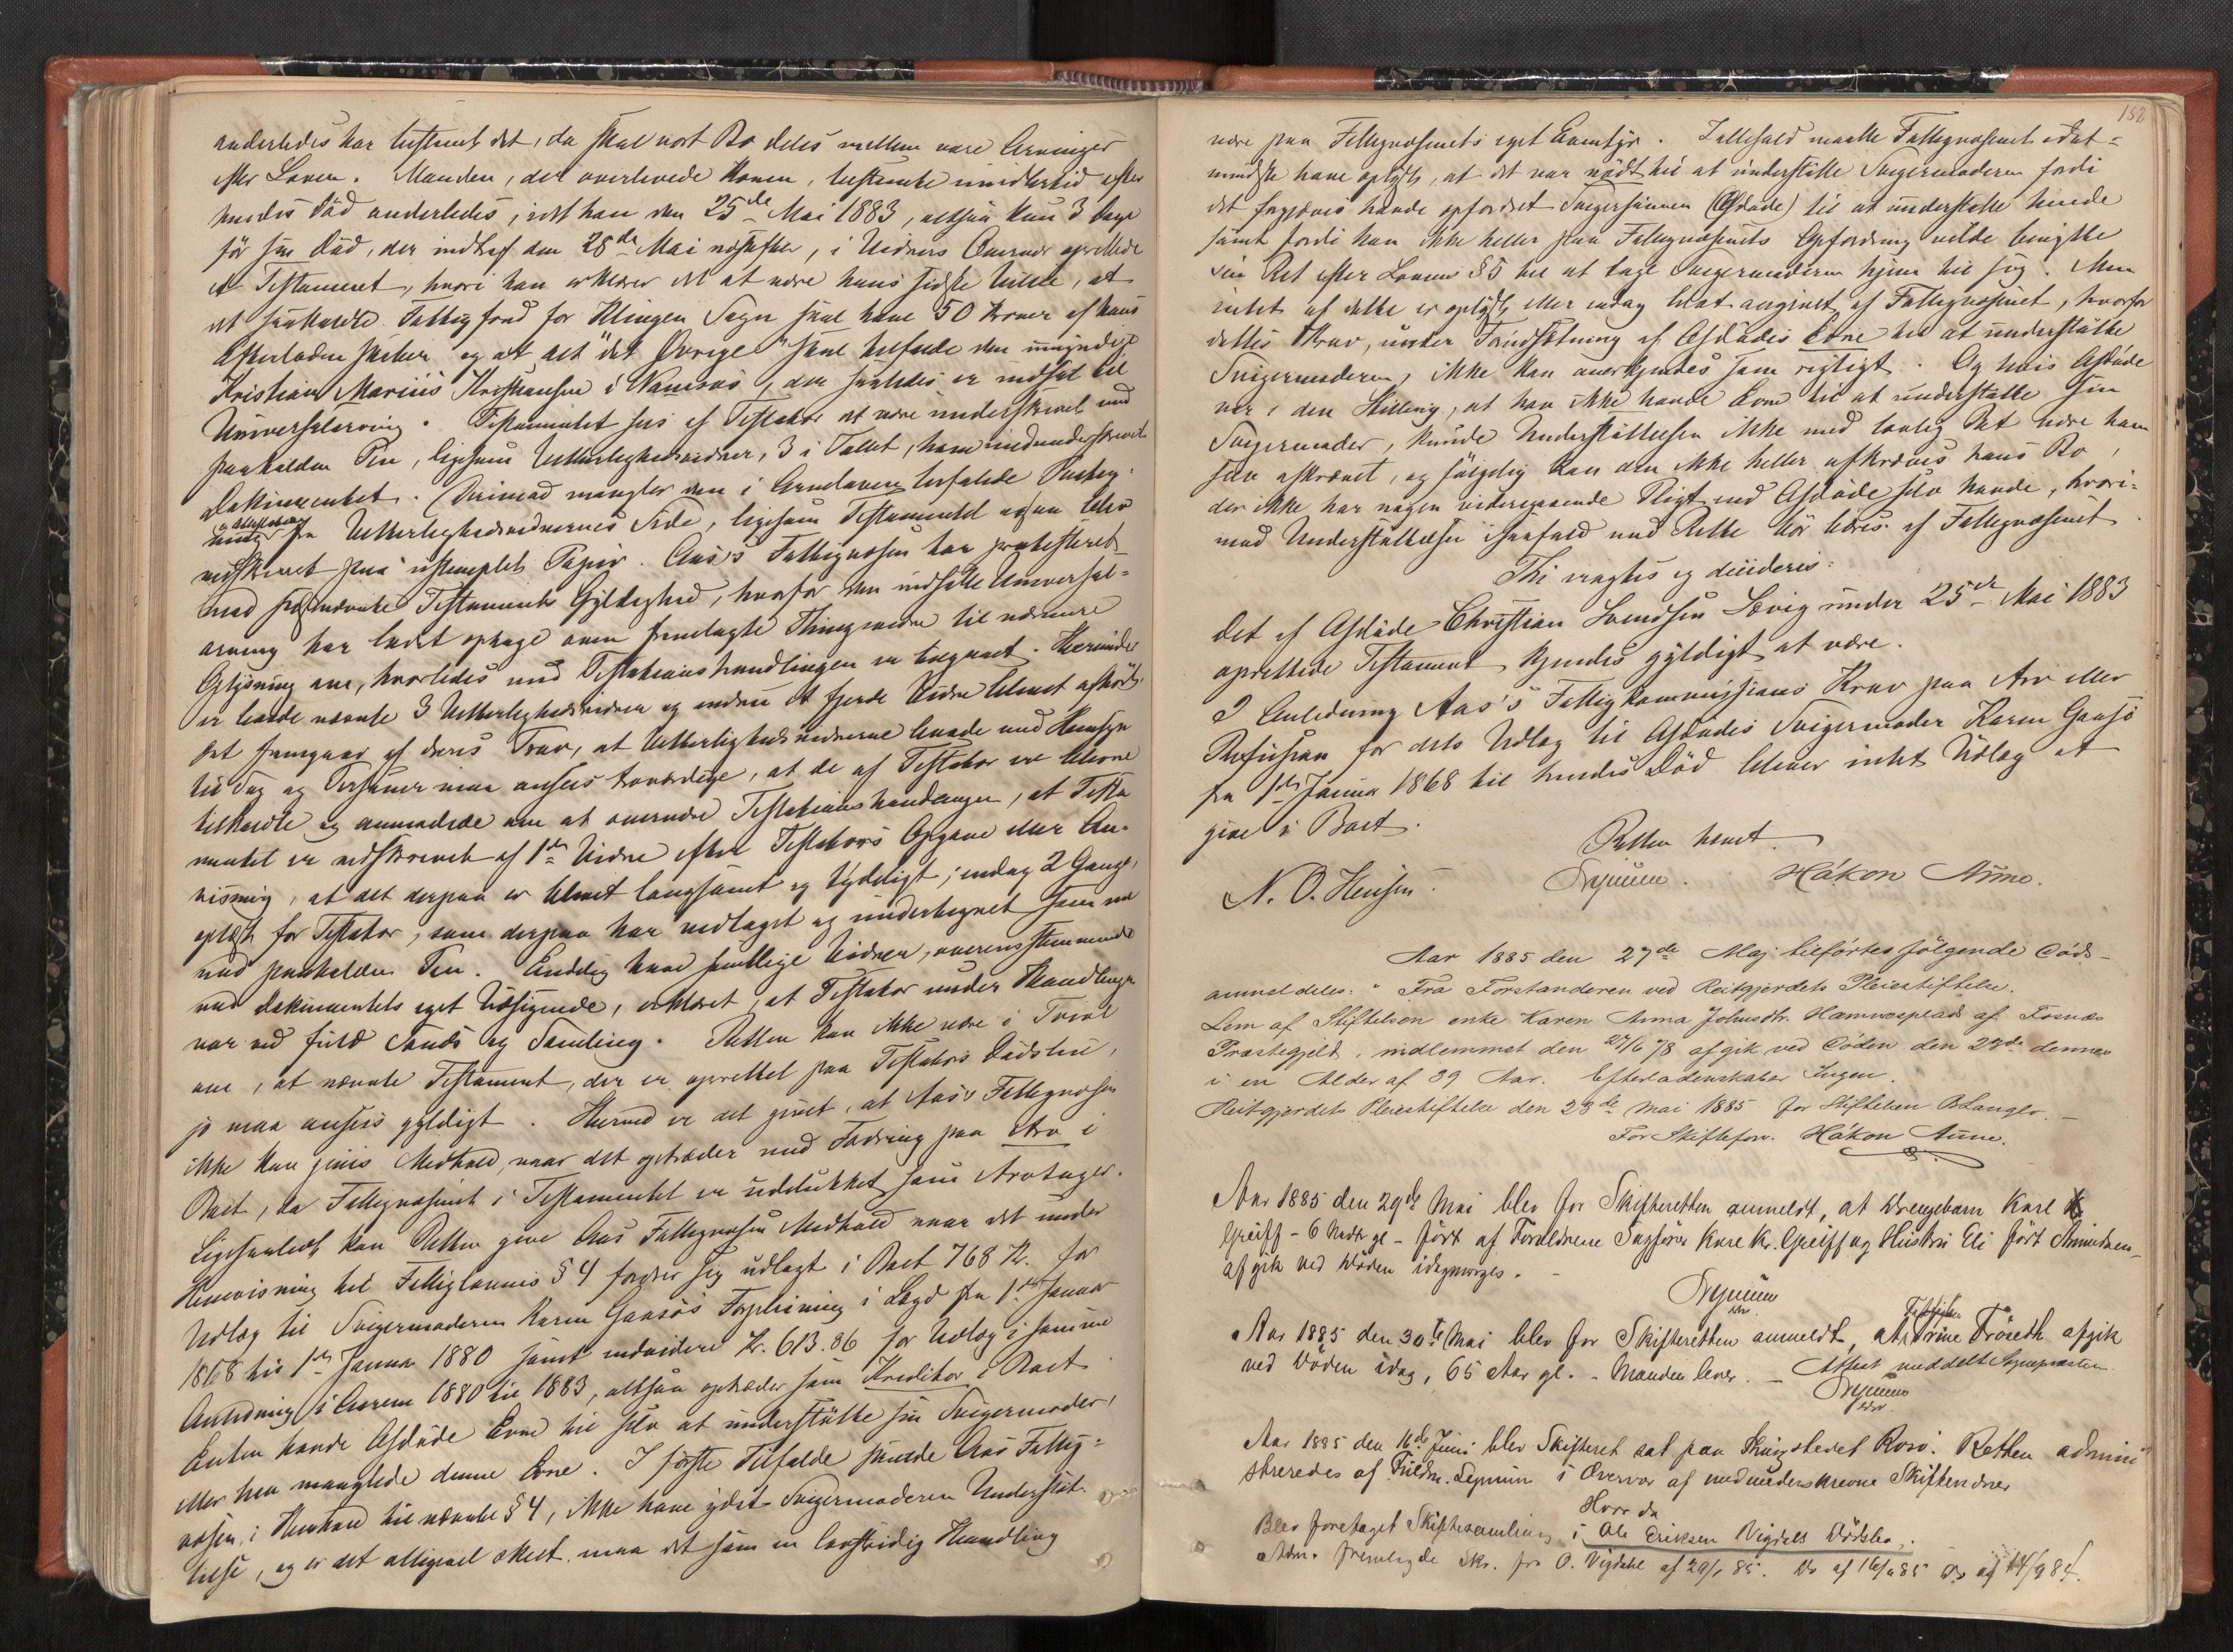 anderledes har bestemt det, da skal vort Bo deles mellem vore Arvinger
efter Loven. Manden, der overlevede Konen, bestemte imidlertid efter
hendes Död anderledes, idet han den 25de Mai 1883, altsaa kun 3 Dage
för sin Död, der indtraf den 28de Mai næstefter, i Vidners Overvær oprettede
et Testament, hvori han erklærer det at være hans sidste Villie, at
det saakaldte Fattigfond for Klingen Sogn skal have 50 Kroner af hans
Efterladenskaber og at alt "det Övrige" skal tilfalde den umyndige
Kristian Marius Kristiansen i Namsos, der saaledes er indsat til
Universalarving. Testamentet sees af Testator at være underskrevet med
paaholden Pen, ligesom Vitterlighedsvidner, 3 i Tallet, have medunderskrevet
Dokumentet. Derimod mangler den i Arveloven befalede Paateg-
ning fra Vitterlighedsvidnernes Side, ligesom Testamentet ogsaa blev
nedskrevet paa ustemplet Papir. Aas's Fattigvæsen har protesteret
mod sidstnævnte Testaments Gyldighed, hvorfor den indsatte Universal-
arving har ladet optage oven fremlagte Thingsvidne til nærmere
Oplysning om, hvorledes med Testationshandlingen er tilgaaet. Herunder
er baade nævnte 3 Vitterlighedsvidner og endnu et fjerde Vidne blevet afhørt.
Det fremgaar af deres Prov, at Vitterlighedsvidnerne baade med Hensyn
til Sag og Personer maa ansees troværdige, at de af Testator ere blevne
tilkaldte og anmodede om at overvære Testationshandlingen, at Testa
mentet er nedskrevet af 1ste Vidne efter Testators Opgave eller An-
visning, at det derpaa er blevet langsomt og tydeligt, endog 2 Gange,
oplæst for Testator, som derpaa har vedtaget og undertegnet
med paaholden Pen. Endelig have samtlige Vidner, overensstemmende
med Dokumentets eget Udsigende, erklæret, at Testator under Handlingen
var ved fuld Sands og Samling. Retten kan ikke være i Tvivl
om, at nævnte Testament, der er oprettet paa Testators Dödsleie,
jo maa ansees gyldigt. Hermed er det givet, at Aas's Fattigvæsen
ikke kan gives Medhold, naar det optræder med Fordring paa Arv i
Boet, da Fattigvæsenet i Testamentet er udelukket som Arvtager.
Ligesaalidt kan Retten give Aas Fattigvæsen Medhold naar det under
Henvisning til Fattiglovens § 4 fordrer sig udlagt i Boet 768 Kr. for
Udlæg til Svigermoderen Karen Gansös Forpleining i Lægd fra 1ste Januar
1868 til 1ste Januar 1880 samt endvidere Kr. 613.06 for Udlæg i samme
Anledning i Aarene 1880 til 1883, altsaa optræder som Kreditor i Boet.
Enten havde Afdöde Evne til selv at understötte sin Svigermoder,
eller han manglede denne Evne. I förste Tilfælde skulde Aas Fattig-
væsen, i Henhold til nævnte § 4, ikke have ydet Svigermoderen Understöt-
telse, og er det alligevel skeet, maa det som en lovstridig Handling
152
være paa Fattigvæsenets eget Eventyr. I altfald maatte Fattigvæsenet idet-
mindste have oplyst, at det var nödt til at understötte Svigermoderen fordi
det forgjæves havde opfordret Svigersönnen (Afdöde) til at understötte hende
samt fordi han ikke heller paa Fattigvæsenets Opfordring vilde benytte
sin Ret efter Lovens § 5 til at tage Svigermoderen hjem til sig. Men
intet af dette er oplyst eller endog blot angivet af Fattigvæsenet, hvorfor
dettes Krav, under Forudsætning af Afdödes Evne til at understötte
Svigermoderen, ikke kan anerkjendes som rigtigt. Og hvis Afdöde
var i den Stilling, at han ikke havde Evne til at understötte sin
Svigermoder, kunde Understöttelsen ikke med lovlig Ret være ham
selv afkrævet, og fölgelig kan den ikke heller afkræves hans Bo,
der ikke har nogen videregaaende Pligt end Afdöde selv havde, hvori-
mod Understöttelsen isaafald med Rette bör bæres af Fattigvæsenet.
Thi eragtes og decideres:
Det af Afdöde Christian Svendsen Sævig under 25de Mai 1883
oprettede Testament kjendes gyldigt at være.
I Anledning Aas's Fattigkommissions Krav paa Arv eller
Refusion for dets Udlæg til Afdödes Svigermoder Karen Gansö
fra 1ste Januar 1868 til hendes Död bliver intet Udlæg at
give i Boet.
Retten hævet.
N. O. Hensen. Håkon Aune.
Aar 1885 den 27de Maj tilførtes følgende Døds-
anmeldelse: "Fra Forstanderen ved Reitgjerdets Pleiestiftelse.
Lem af Stiftelsen enke Karen Anna Johnsdtr. Hamnesplads af Fosnæs
Præstegjeld, indlemmet den 27/6 78 afgik ved Døden den 23de dennes
i en Alder af 39 Aar. Efterladenskaber Ingen.
Reitgjerdets Pleiestiftelse den 23de Mai 1885 for Stiftelsen
For Skiftefor. Håkon Aune.
Aar 1885 den 29de Mai blev for Skifteretten anmeldt, at Drengebarn Karl
Greiff - 6 Mdr gl - født af Forældrene Sagfører Karl Kr. Greiff og Hustru Eli født Amundsen-
afgik ved Døden idagmorges.
Aar 1885 den 30te Mai blev for Skifteretten anmeldt, at Trine Fröseth afgik
ved Døden idag, 65 Aar gl. - Manden lever. - Attest meddelt Sognepræsten.
Aar 1885 den 16de Juni blev Skifteret sat paa Thingstedet Rosö. Retten admini
streredes af Fuldm. i Overvær af medunderskrevne Skiftevidner
Hvor da
Blev foretaget Skiftesamling i Ole Eriksen Vigdals Dödsbo.
Adm. fremlagde Skr. fra O. Vigdahl af 29/1 85. Do af 16/4 85 Do af 14/9 84.